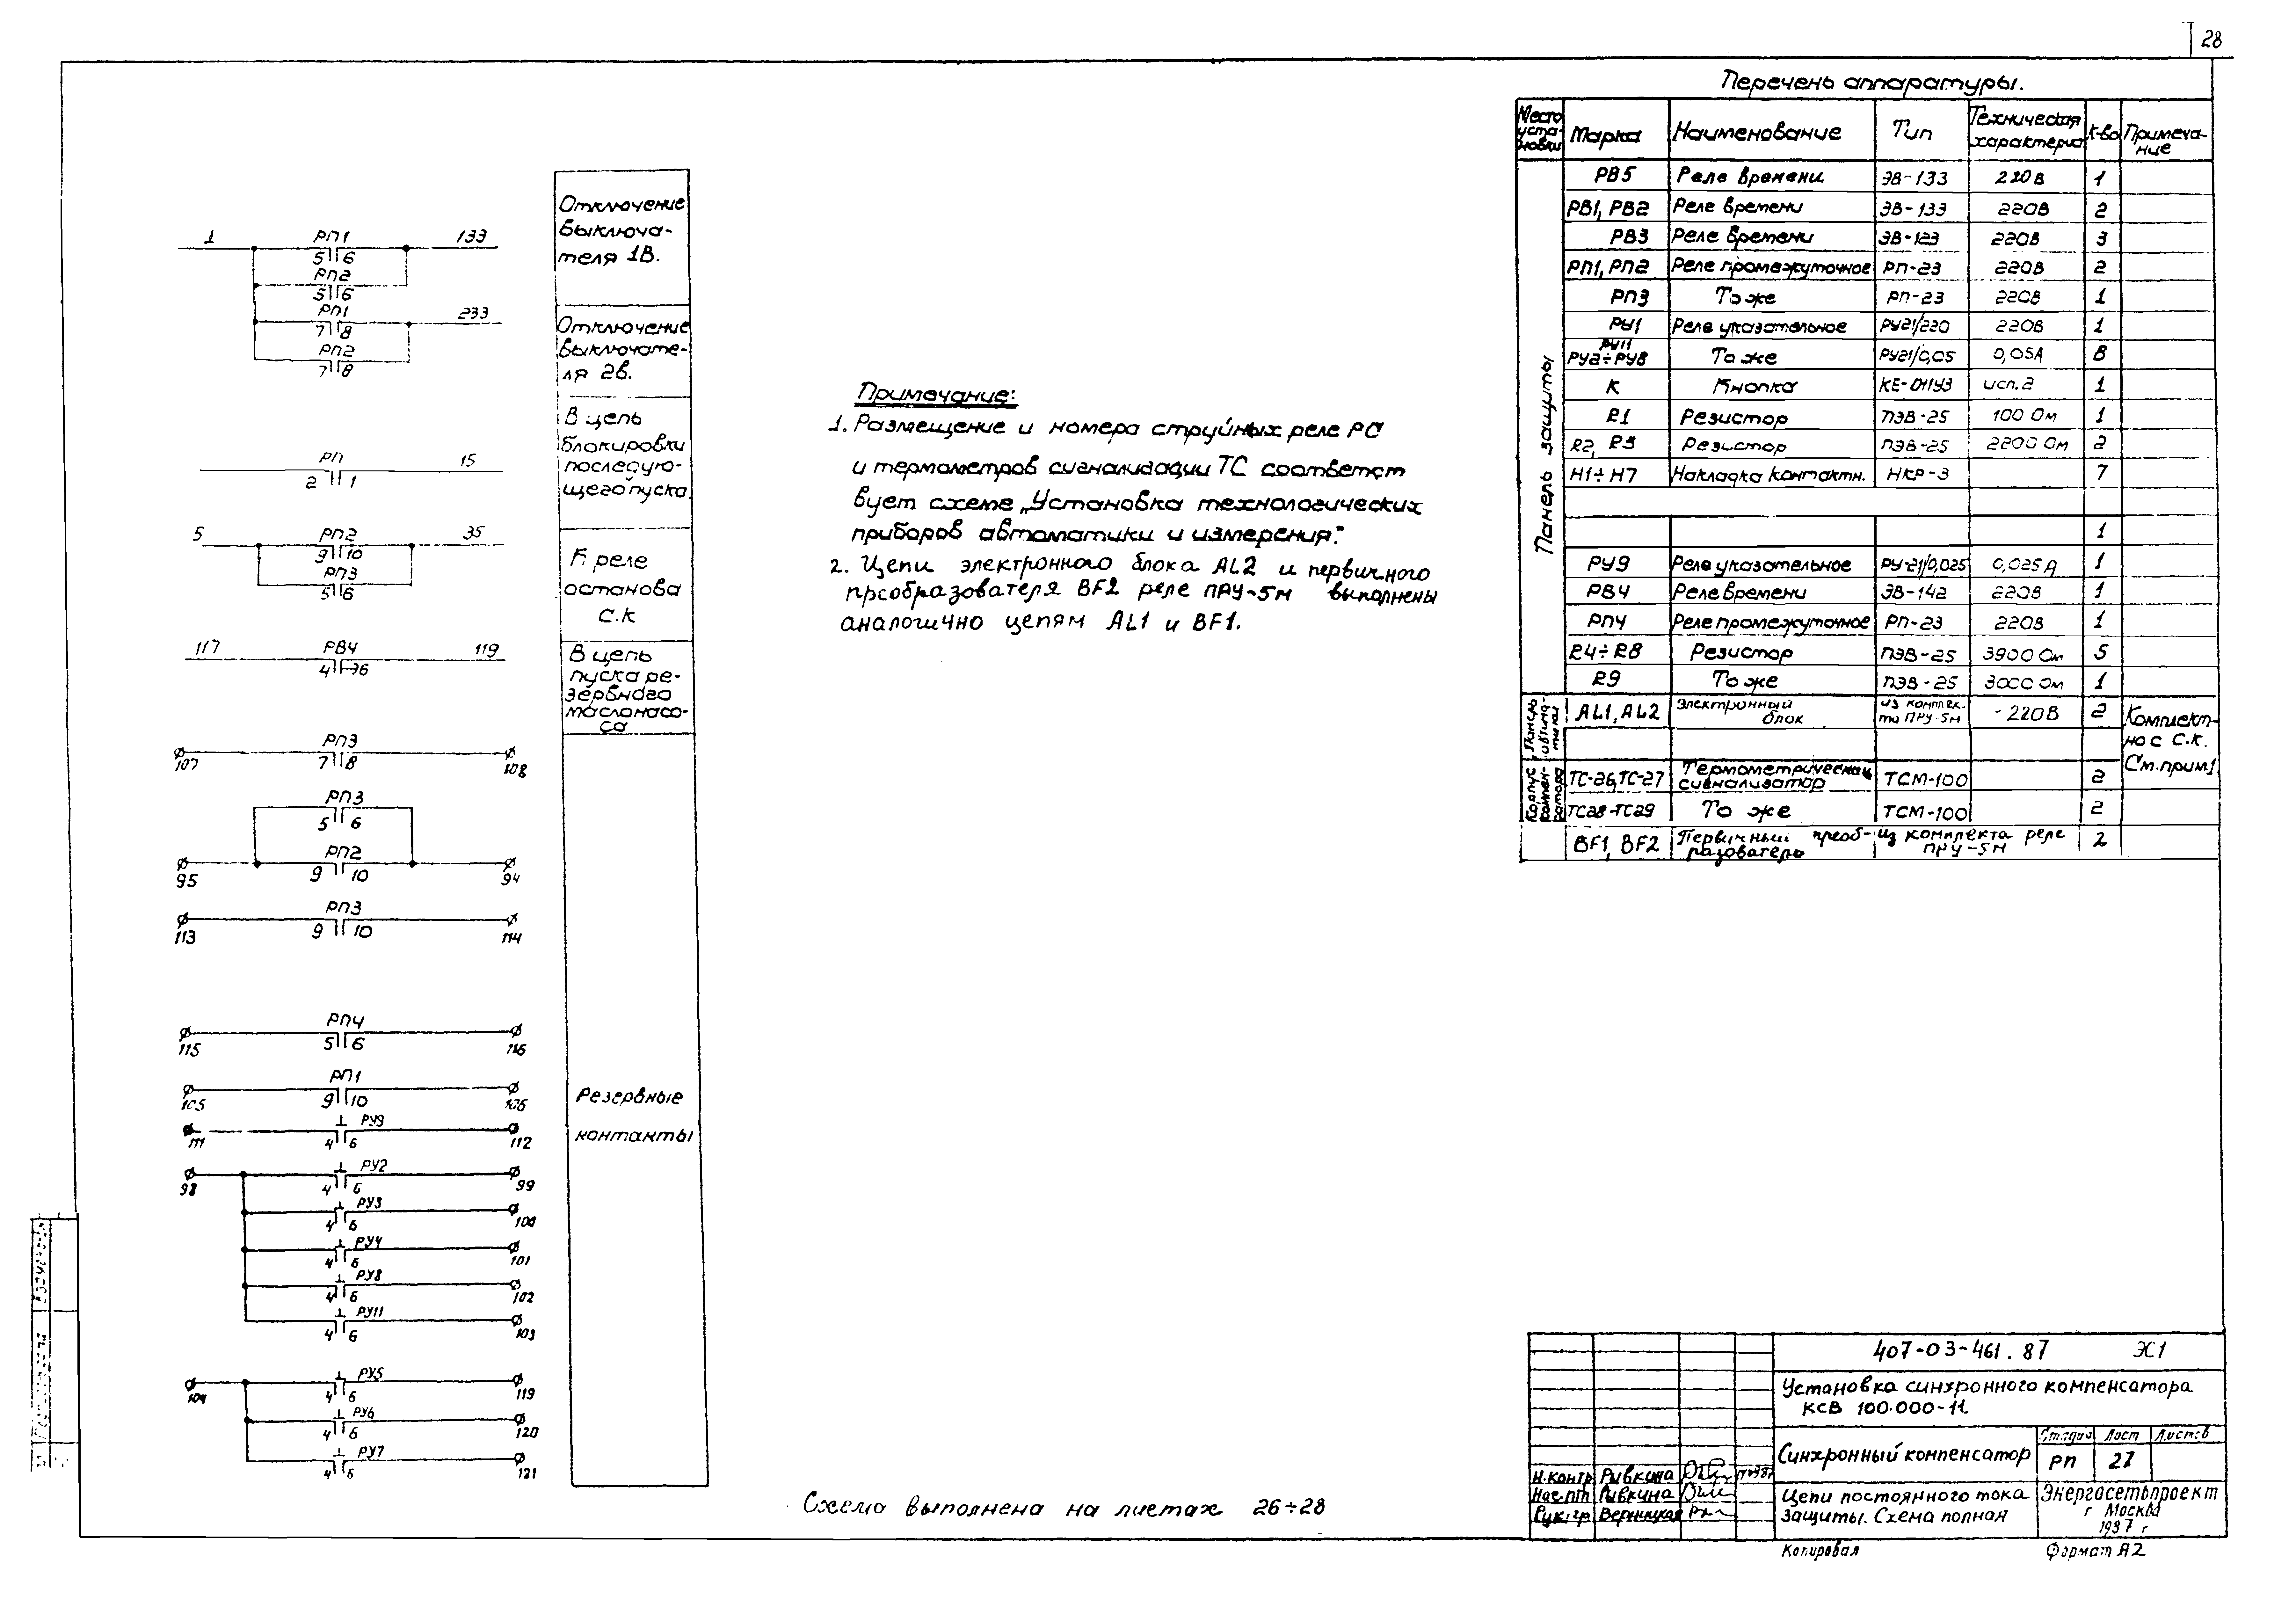 28
Перечень аппаратуры.
Место уста-новки Марка Наименование Тип Техническая характерис К-во Примеча-ние
Панель защиты
РВ5 Реле времени ЭВ-133 220В 1
РВ1, РВ2 Реле времени ЭВ-133 220В 2
РВ3 Реле времени ЭВ-123 220В 3
РП1, РП2 Реле промежуточное РП-23 220В 2
РП3 То же РП-23 220В 1
РУ1 Реле указательное РУ21/220 220В 1
РУ11 РУ2÷РУ8 То же РУ21/0,05 0,05А 8
К Кнопка КЕ-011У3 исп.2 1
R1 Резистор ПЭВ-25 100 Ом 1
R2, R3 Резистор ПЭВ-25 2200 Ом 2
Н1÷Н7 Накладка контактн. НКР-3 7
1
РУ9 Реле указательное РУ-21/0,025 0,025А 1
РВ4 Реле времени ЭВ-142 220В 1
РП4 Реле промежуточное РП-23 220В 1
R4÷R8 Резистор ПЭВ-25 3900 Ом 5
R9 То же ПЭВ-25 3000 Ом 1
Панель автома-тики
AL1, AL2 Электронный блок из комплек-та ПРУ-5М -220В 2
Комплект-но с С.К.
См.прим1
Корпус компен-сатора
ТС-26, ТС-27 Термометрический сигнализатор ТСМ-100 2
ТС28-ТС29 То же ТСМ-100 2
BF1, BF2 Первичный преоб-разователь из комплекта реле ПРУ-5М 2
1 РП1 133
5 6
РП2
5 6
РП1 233
7 8
РП2
7 8
Отключение
выключа-
теля 1В.
Отключение
выключате-
ля 2В.
РП 15
2 1
В цепь
блокировки
последую-
щего пуска.
5 РП2 35
9 10
РП3
5 6
К реле
останова
С.К
117 РВ4 119
4 6
В цепь
пуска ре-
зервного
маслонасо-
са
РП3
107 7 8 108
РП3
5 6
РП2
95 9 10 94
РП3
113 9 10 114
РП4
115 5 6 116
РП1
105 9 10 106
РУ9
111 4 6 112
РУ2
98 4 6 99
РУ3
4 6 100
РУ4
4 6 101
РУ8
4 6 102
РУ11
4 6 103
РУ5
109 4 6 119
РУ6
4 6 120
РУ7
4 6 121
Резервные
контакты
Примечание:
1. Размещение и номера струйных реле РС
и термометров сигнализации ТС соответст
вует схеме „Установка технологических
приборов автоматики и измерения".
2. Цепи электронного блока AL2 и первичного
преобразователя BF2 реле ПРУ-5М выполнены
аналогично цепям AL1 и BF1.
Схема выполнена на листах 26÷28
407-03-461.87 ЭС1
Установка синхронного компенсатора
КСВ 100.000-11
Синхронный компенсатор
Стадия Лист Листов
РП 27
Н.контр Рывкина
Нач.ПТ Рывкина
Рук.гр Верницкая
Цепи постоянного тока
защиты. Схема полная
Энергосетьпроект
г Москва
1987 г
Копировал Формат А2